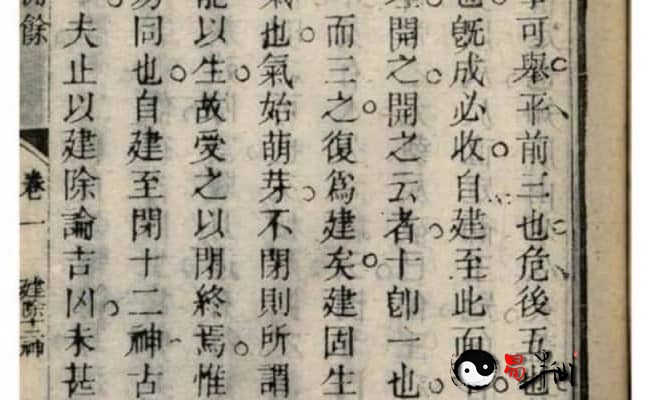 可舉平前三也危後五也
也旣成必收自建至此而
開之開之云者十卽一也
而三之復爲建矣建固生
氣也氣始萌芽不閉則所謂
能以生故受之以閉終焉惟
同也自建至閉十二神古
夫止以建除論吉凶未甚
餘
卷一
建除十二神
易